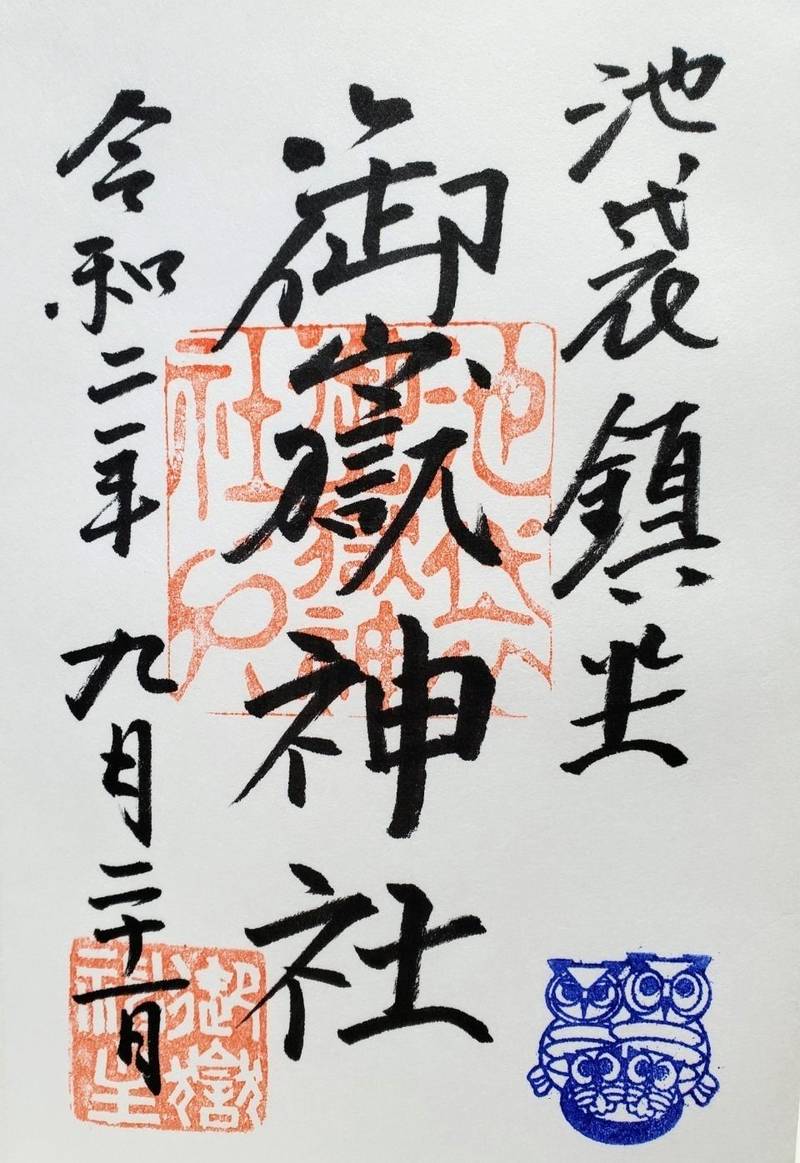 池袋鎮坐
御嶽神社
令和二年九月二十一日
池袋
御嶽神
社印
御嶽